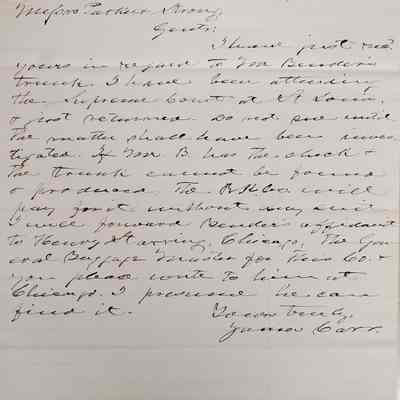 Messrs Parker & Strong,
Gents:
I have just rec'd
yours in regard to Mr Bender's
trunk. I have been attending
the Supreme Court at St Louis,
& just returned. Do not sue until
the matter shall have been inves
tigated. If Mr. B. has the check &
the trunk cannot be found
& produced the RR Co will
pay for it without any suit
I will forward Bender's affidavit
to Henry Starring, Chicago, the Gen
eral Baggage Master for this Co. &
you please write to him at
Chicago. I presume he can
find it.
Yours truly,
James Carr.